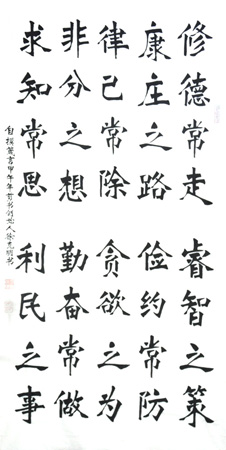 修德常走
康庄之路
律己常除
非分之想
求知常思
睿智之策
俭约常防
贪欲之为
勤奋常做
利民之事
自撰箴言甲午年